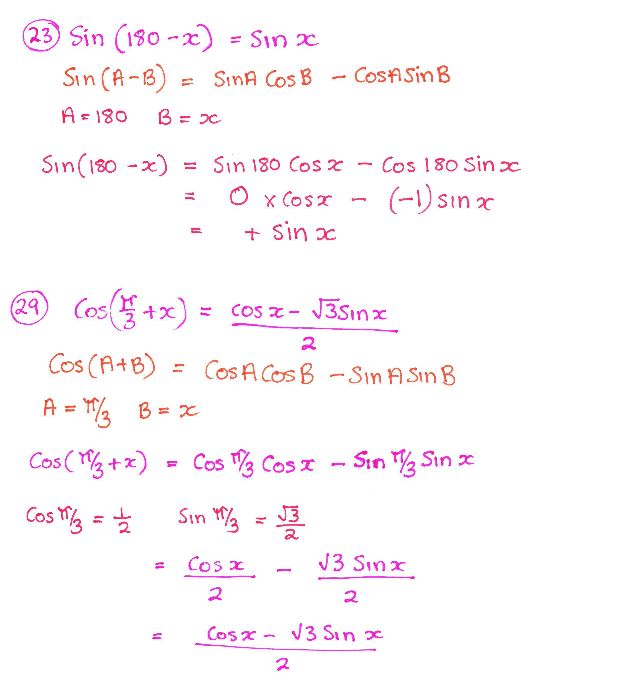 (23) Sin (180 - x) = Sin x
Sin (A-B) = SinA CosB - CosASinB
A = 180 B = x
Sin(180 - x) = Sin 180 Cos x - Cos 180 Sin x
= 0 x Cosx - (-1) sin x
= + Sin x
(29) Cos(π/3 + x) = cos x - √3Sinx / 2
Cos (A+B) = CosACosB - SinASinB
A = π/3 B = x
Cos (π/3 + x) = Cos π/3 Cos x - Sin π/3 Sin x
Cos π/3 = 1/2 Sin π/3 = √3/2
= Cos x / 2 - √3 Sinx / 2
= Cosx - √3 Sin x / 2